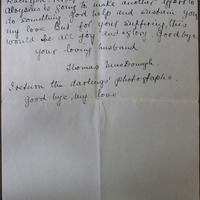 Aloysius is going to make another effort to
do something God help and sustain you
my love but for your suffering this
would be all joy and glory. Good bye
your loving husband
Thomas MacDonagh.
I return the darlings' photographs.
Good bye, my love